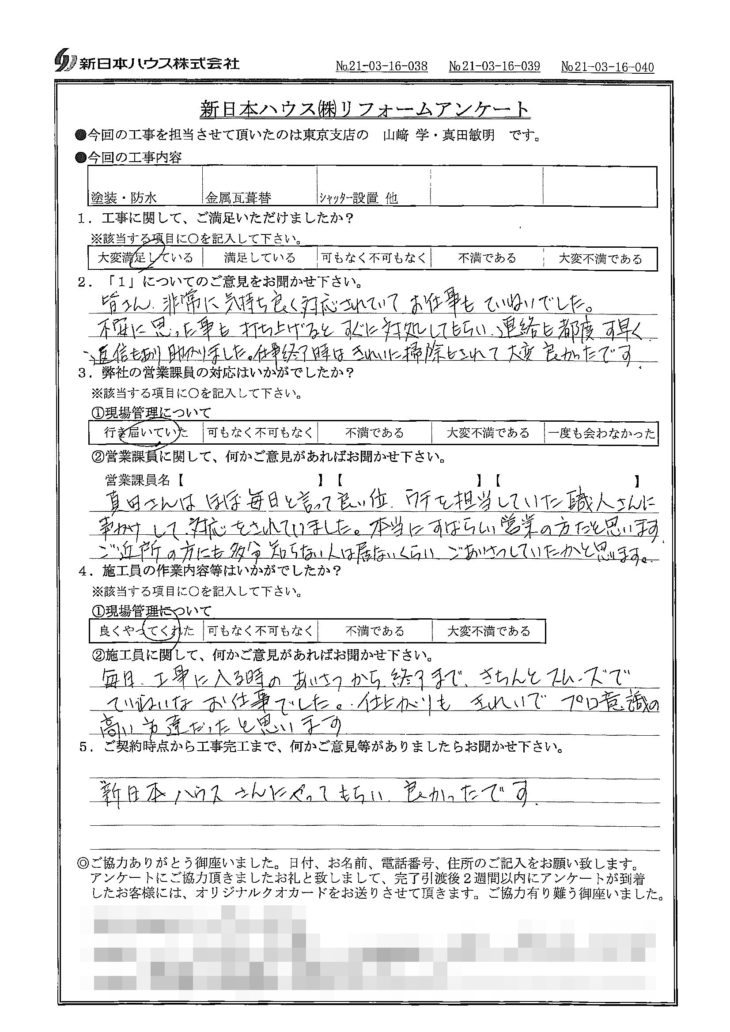 新日本ハウス株式会社
№21-03-16-038 №21-03-16-039 №21-03-16-040
新日本ハウス㈱リフォームアンケート
●今回の工事を担当させて頂いたのは東京支店の 山﨑 学・真田敏明 です。
●今回の工事内容
塗装・防水 金属瓦葺替 ｼｬｯﾀｰ設置 他
1．工事に関して、ご満足いただけましたか？
※該当する項目に○を記入して下さい。
大変満足している 満足している 可もなく不可もなく 不満である 大変不満である
2．「1」についてのご意見をお聞かせ下さい。
皆さん、非常に気持ち良く対応されていて お仕事も ていねいでした。
不安に思った事も 打ち上げると すぐに対処してもらい、連絡も都度 す早く
返信もあり助かりました。仕事終了時は きれいに掃除もされて 大変 良かったです
3．弊社の営業課員の対応はいかがでしたか？
※該当する項目に○を記入して下さい。
①現場管理について
行き届いていた 可もなく不可もなく 不満である 大変不満である 一度も会わなかった
②営業課員に関して、何かご意見があればお聞かせ下さい。
営業課員名【 】【 】【 】
真田さんは ほぼ毎日と言って良い位、ウチを担当していた職人さんに
声かけして、対応をされていました。本当にすばらしい営業の方だと思います
ご近所の方にも多分 知らない人は居ないくらい ごあいさつしていたかと思います。
4．施工員の作業内容等はいかがでしたか？
※該当する項目に○を記入して下さい。
①現場管理について
良くやってくれた 可もなく不可もなく 不満である 大変不満である
②施工員に関して、何かご意見があればお聞かせ下さい。
毎日、工事に入る時の あいさつから 終了まで、きちんとスムーズで
ていねいな お仕事でした。仕上がりも きれいで プロ意識の
高い方達だったと思います
5．ご契約時点から工事完工まで、何かご意見等がありましたらお聞かせ下さい。
新日本ハウスさんにやってもらい、良かったです
◎ご協力ありがとう御座いました。日付、お名前、電話番号、住所のご記入をお願い致します。
アンケートにご協力頂きましたお礼と致しまして、完了引渡後２週間以内にアンケートが到着
したお客様には、オリジナルクオカードをお送りさせて頂きます。ご協力有り難う御座いました。